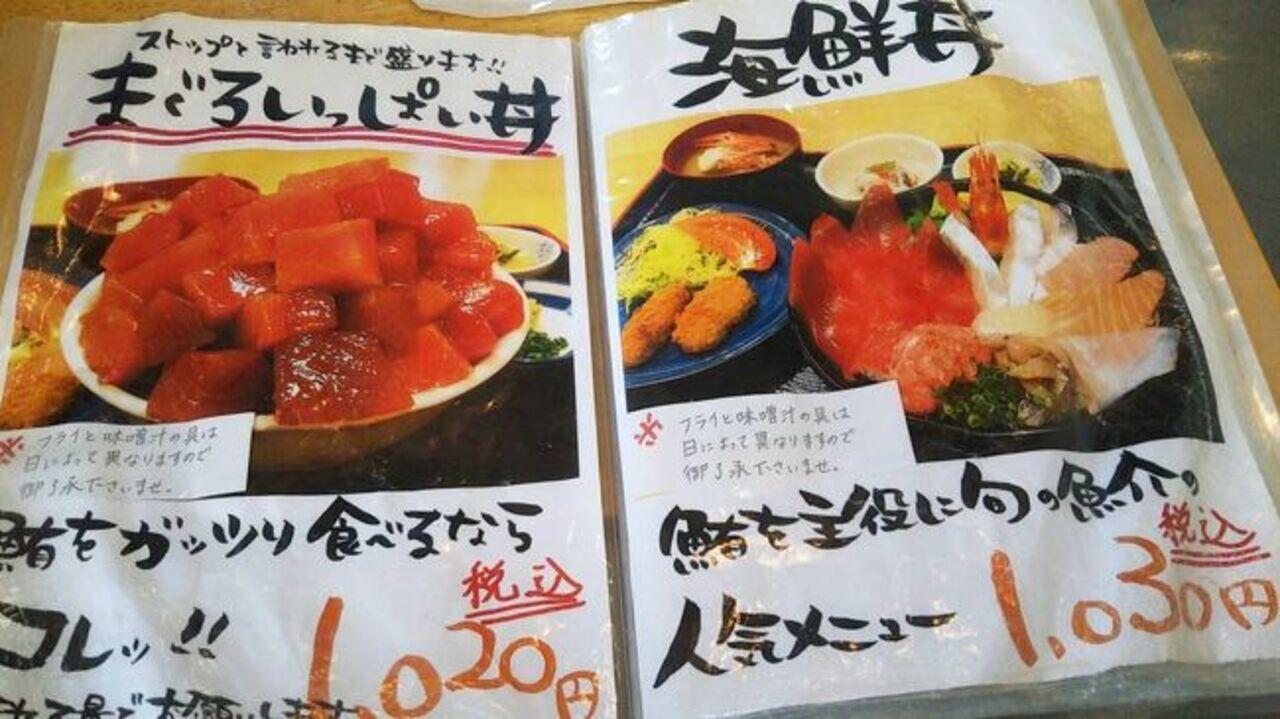 ストップと言われるまで盛ります!!
まぐろいっぱい丼
※ フライと味噌汁の具は
日によって異なりますので
御了承下さいませ。
鮪をガッツリ食べるなら
コレッ!!
税込
1,020円
お願いします
海鮮丼
※ フライと味噌汁の具は
日によって異なりますので
御了承下さいませ。
鮪を主役に旬の魚介の
人気メニュー
税込
1,030円